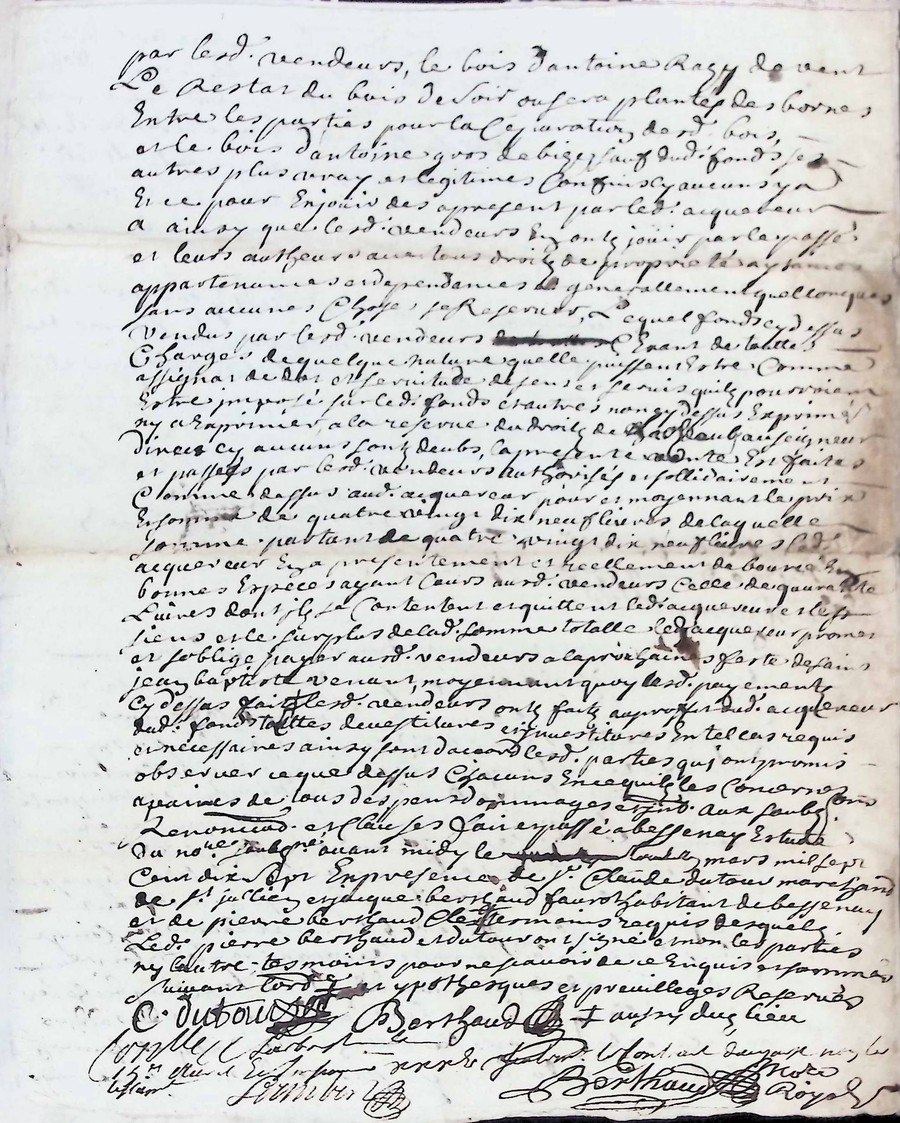 par lesd. vendeurs, le bois d'antoine Ragy de vent
Le Restat du bois de soir ou sera plantés des bornes
Entre les parties pour la separation desd. bois,
et le bois d'antoine gros de bize, sauf dud. fonds ses
autres plus vray et legitimes Confins sy aucuns y a
Et ce pour En jouir des apresent par led. acquereur
a ainsy que lesd. vendeurs En ont joüir par le passé
et leurs autheurs avec tous droits de proprieté aysances
appartenances et dependances et generallement quelconques
sans aucunes Choses se Reserver, Lequel fonds cy dessus
vendus par lesd. vendeurs Exant de touttes
Charges de quelque nature quelle puissent Estre Comme
assignat de dot et servitude de sens et servis quils pourroient
Estre imposé sur led. fonds et autres non cy dessus Exprimés
ny a Exprimer, a la reserve du droits de au seigneur
direct sy aucuns sont deubs, la presente vente Est faites
et passées par lesd. vendeurs authorisés et sollidairement
Comme dessus aud. acquereur pour et moyennant le prix
Et somme de quatre vingt dix neuf livres de laquelle
somme partant de quatre vingt dix neuf livres led.
acquereur En a presentement et reellement deboursé En
bonnes Espèces ayant Cours ausd. vendeurs Celle de quarante
Livres dont ils se Contentent et quittent led. acquereur et les
siens et le surplus de lad. somme totalle led. acquereur promet
et soblige payer ausd. vendeurs a la prochaines feste de saint
jean baptiste venant, moyennant quoy lesd. payements
cy dessus faits lesd. vendeurs ont faits au proffit dud. acquereur
dud. fonds touttes devestitures et investitures En tel cas requis
et nécessaires ainsy sont d'accord lesd. parties qui ont promis
observer ce que dessus Chacuns En ce qui les Concernes
a peines de tous despens dommages et aux soub.
Renonciaõ. et Clauses fait et passé a bessenay Estude
du no.re soubné avant midy le mars mil sept
Cent dix sept En presence de Sr. Claude dutour marchand
de st. jullien et jacque berthaud habitant de bessenay
et de pierre berthaud Clerc temoins requis desquels
Led. pierre berthaud et dutour ont signé et non les parties
ny lautre temoins pour ne scavoir de ce Enquis et sommés
suivant l'ord.e et ypothesques et previlleges Reservés
C. dutour Berthaud
Berthaud No.re Royal